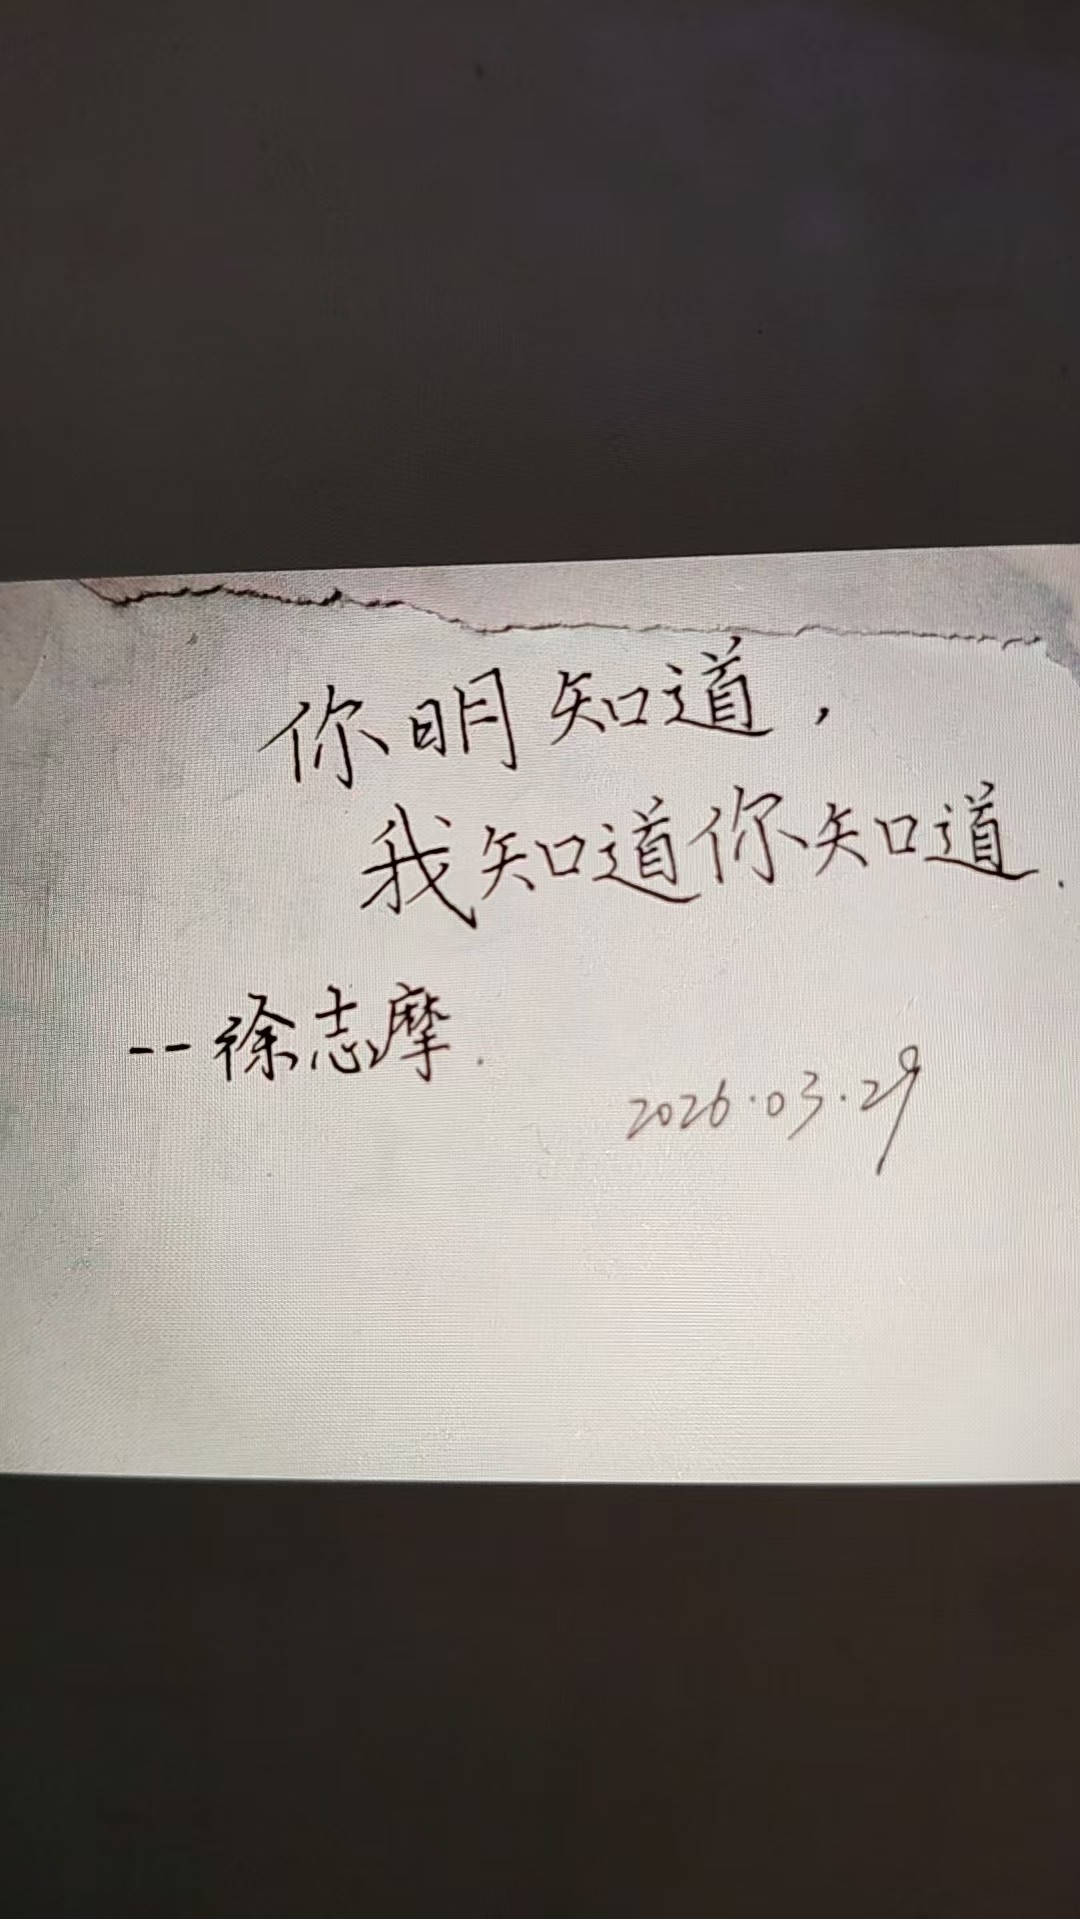 你明知道，
我知道你知道.
--徐志摩.
2026.03.29